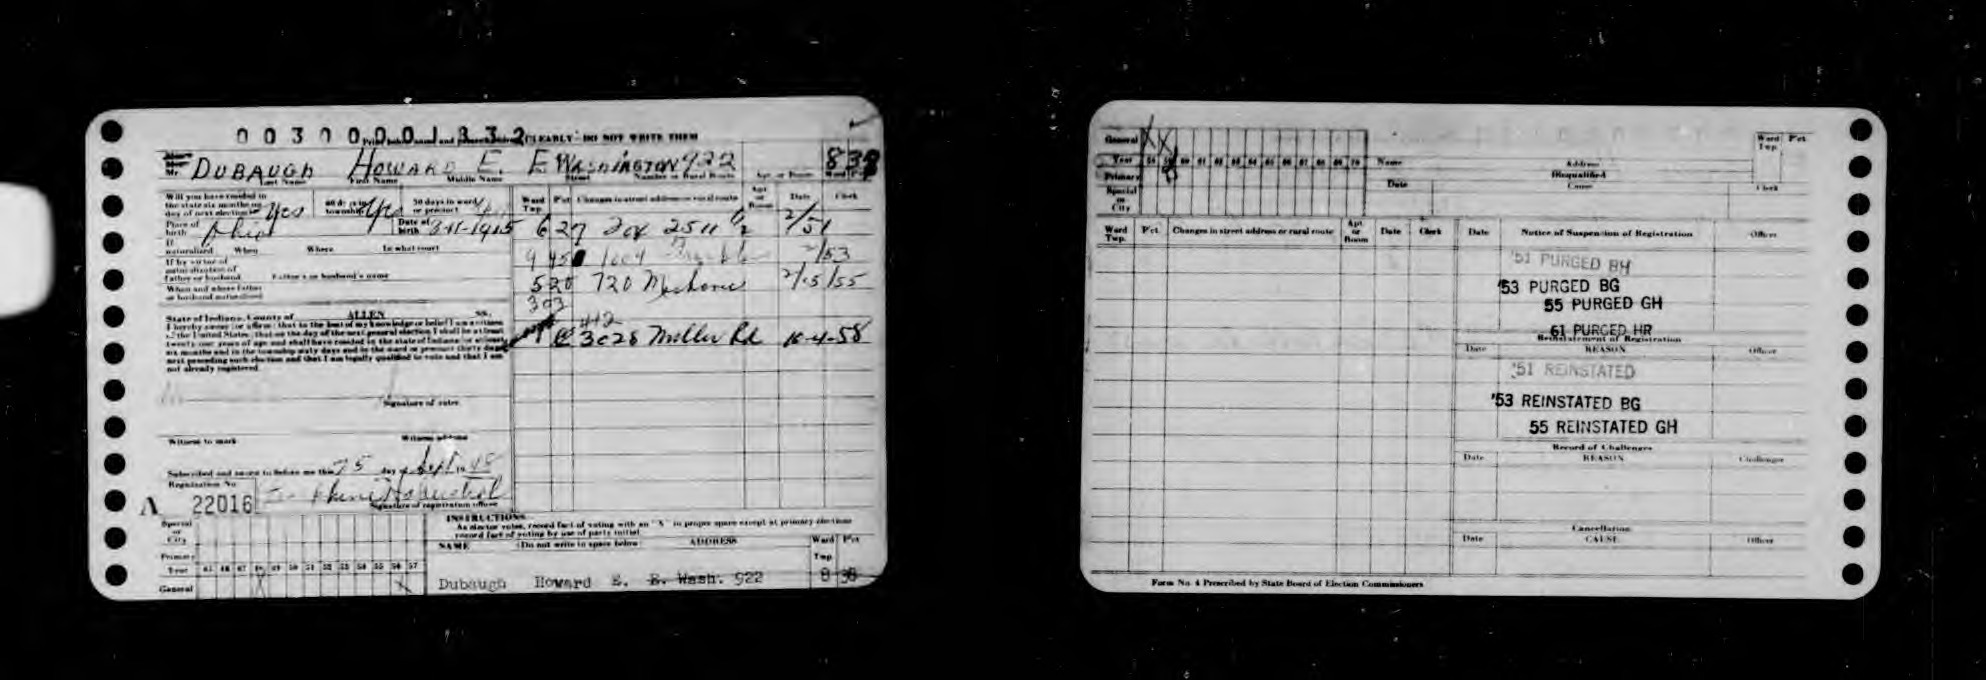 0030000183 2 CLEARLY - DO NOT WRITE THEM
Mr. DUBAUGH HOWARD E. E WASHINGTON 922 8 38
Last Name First Name Middle Name Street Number or Rural Route Apt. or Room Ward Pct
Will you have resided in the state six months on day of next election Yes 60 days in township Yes 30 days in ward or precinct
Ward Twp. Pct Changes in street address or rural route Apt or Room Date Clerk
Place of birth Ohio Date of birth 1915
6 27 2511 1/2 2/51
If naturalized When Where In what court
9 45 1604 2/53
If by virtue of naturalization of father or husband Father's or husband's name
520 720 Mechanic 2/15/55
When and where father or husband naturalized
303
State of Indiana, County of ALLEN ss.
I hereby swear (or affirm) that to the best of my knowledge or belief I am a citizen
of the United States; that on the day of the next general election I shall be at least
twenty-one years of age and shall have resided in the state of Indiana for at least
six months and in the township sixty days and in the ward or precinct thirty days
next preceding such election and that I am legally qualified to vote and that I am
not already registered.
442
3028 Miller Rd 10-4-58
Signature of voter
Witness to mark Witness address
Subscribed and sworn to before me this 25 day of Sept 19 48
Registration No.
A 22016
Signature of registration officer
INSTRUCTIONS
As elector votes, record fact of voting with an "X" in proper space except at primary elections
record fact of voting by use of party initial.
Special or City
NAME (Do not write in space below) ADDRESS Ward Twp Pct
Primary
Year 45 46 47 48 49 50 51 52 53 54 55 56 57
General X X
Dubaugh Howard E. E. Wash. 922 8 38
General X X
Year 58 59 60 61 62 63 64 65 66 67 68 69 70 Name Address Ward Twp. Pct.
Primary Disqualified
Special or City Date Cause Clerk
Ward Twp. Pct. Changes in street address or rural route Apt or Room Date Clerk Date Notice of Suspension of Registration Officer
'51 PURGED BH
'53 PURGED BG
55 PURGED GH
61 PURGED HR
Reinstatement of Registration
Date REASON Officer
'51 REINSTATED
'53 REINSTATED BG
55 REINSTATED GH
Record of Challenges
Date REASON Challenger
Cancellation
Date CAUSE Officer
Form No. 4 Prescribed by State Board of Election Commissioners